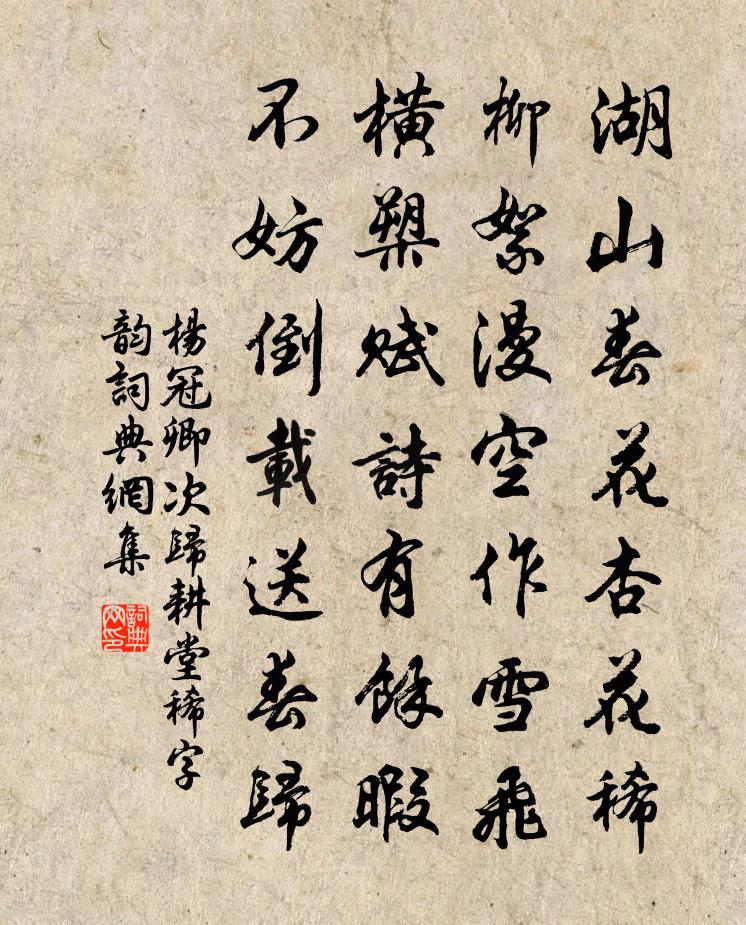 湖山春花杏花稀
柳絮漫空作雪飛
橫槊賦詩有餘暇
不妨倒載送春歸
楊冠卿次歸耕堂稀字
韵詞典網集
詞典
网印